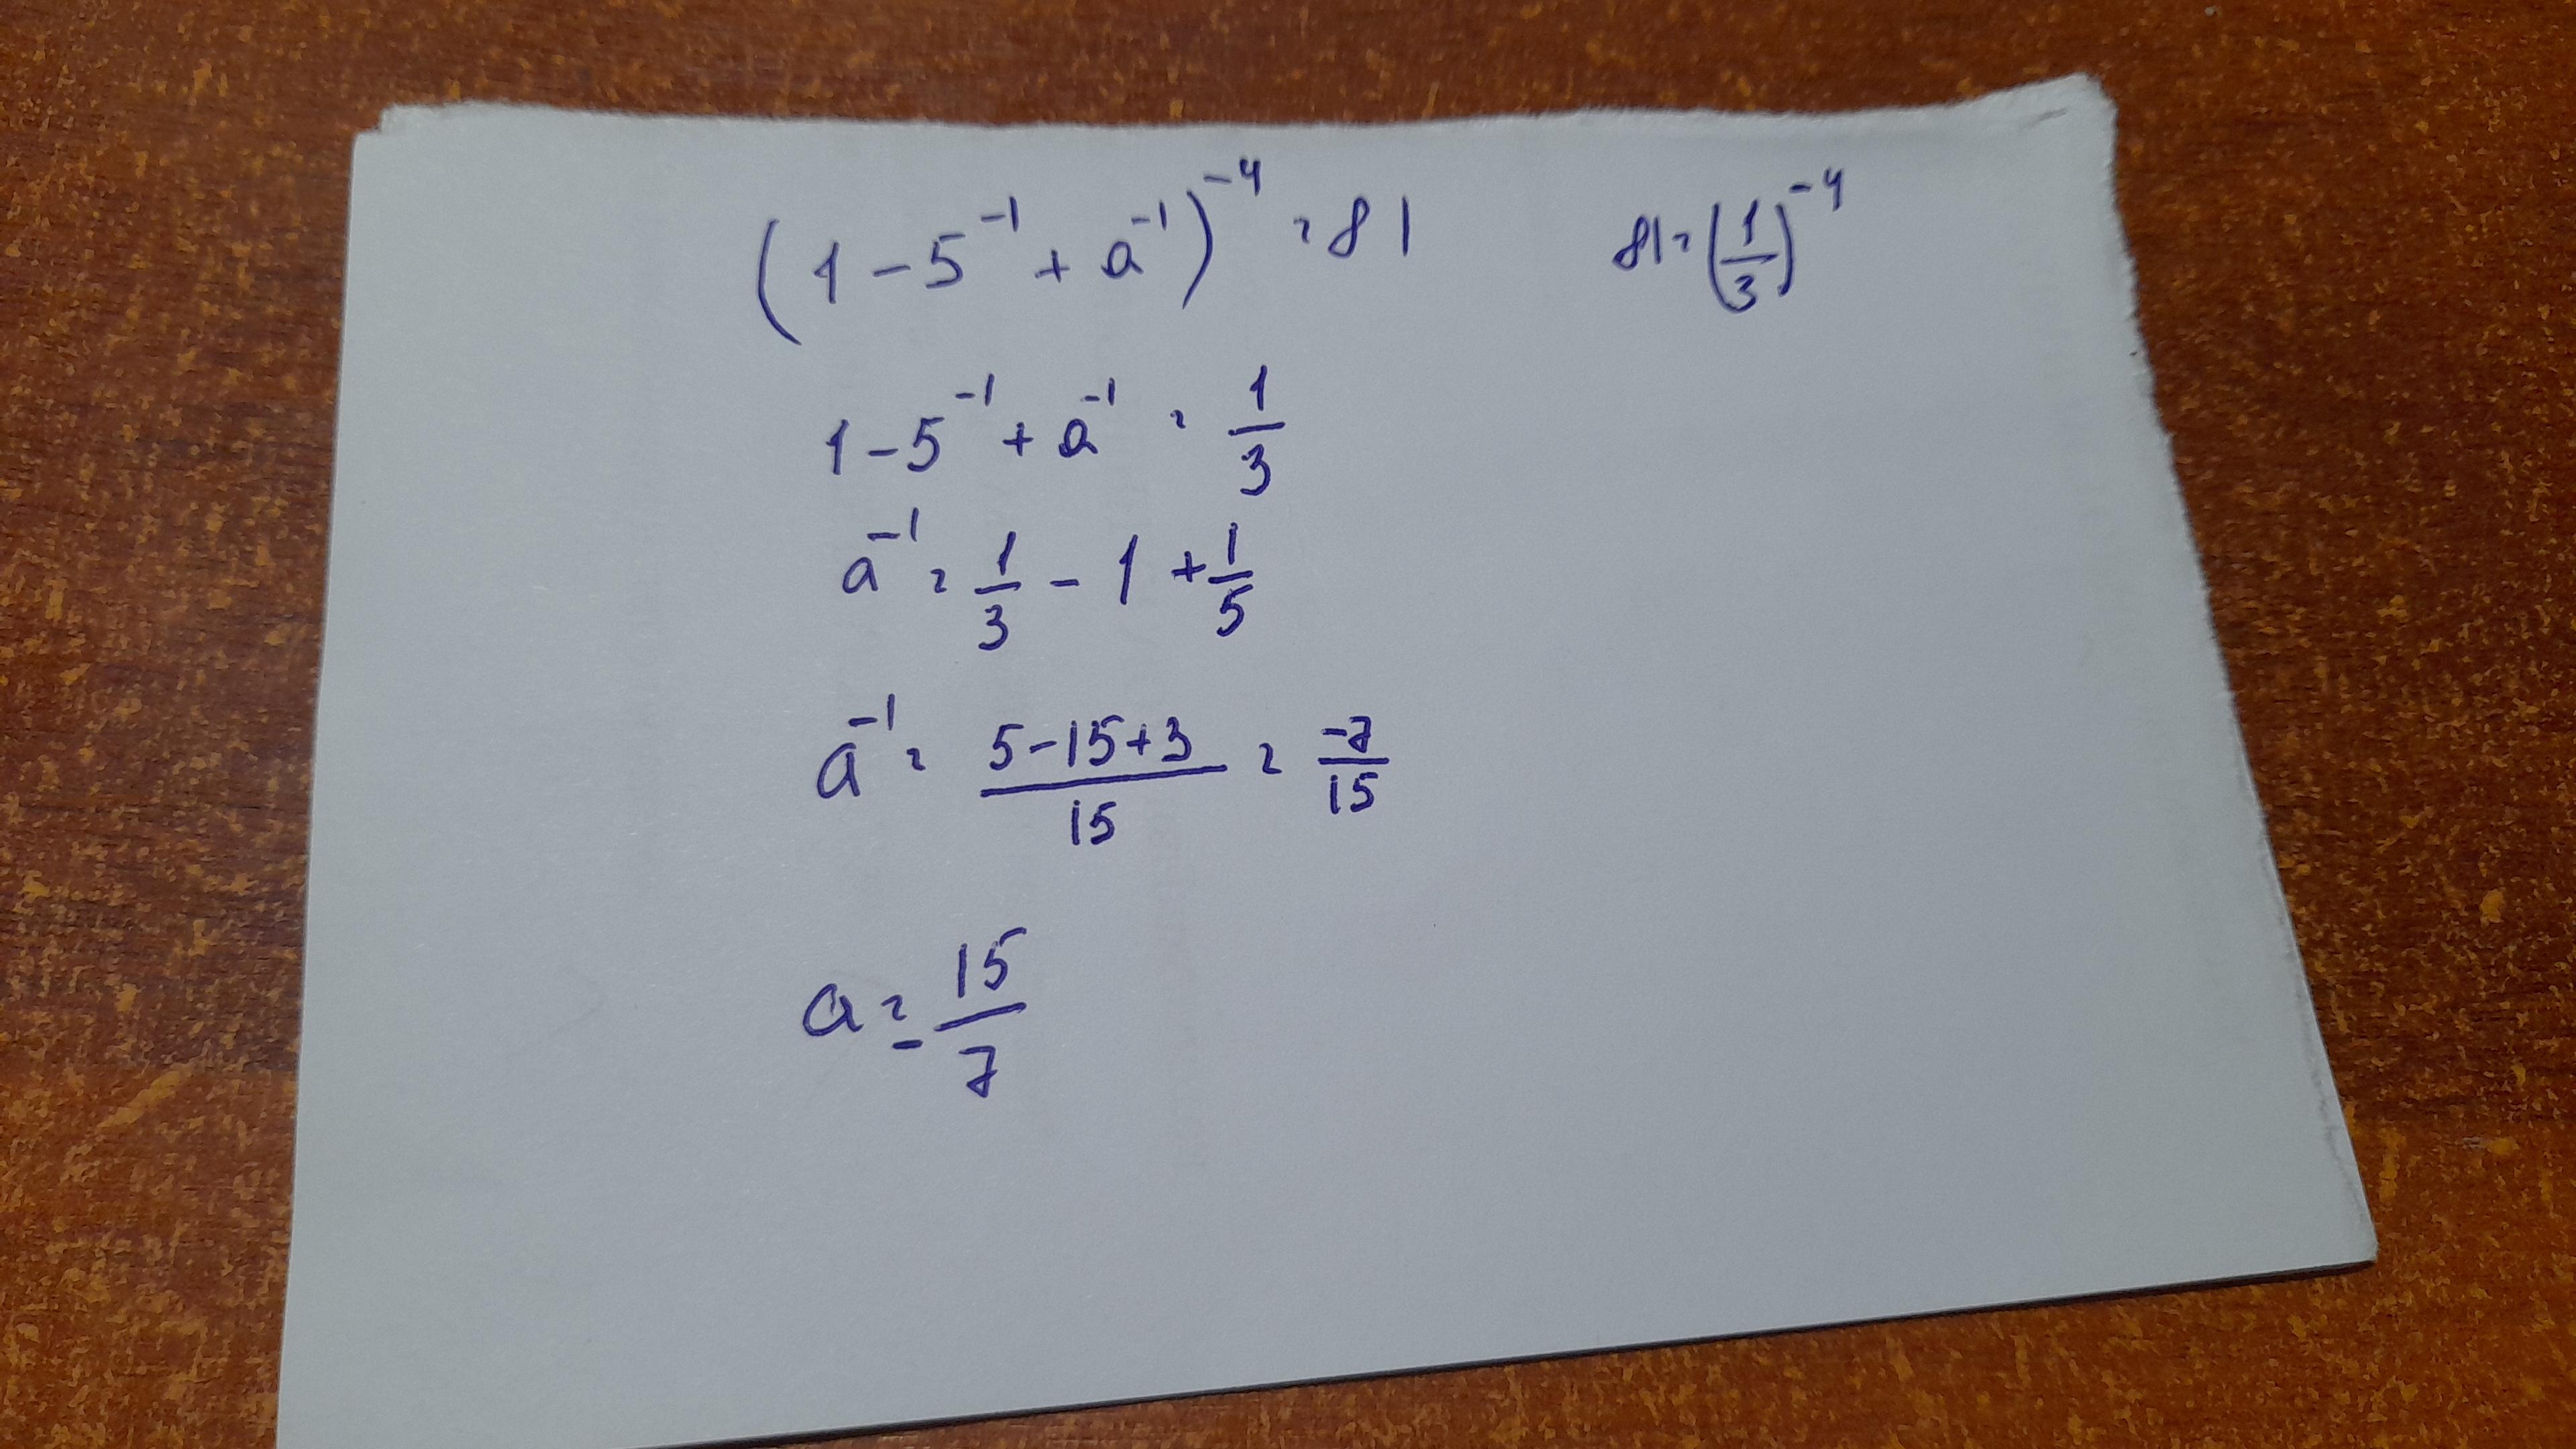 (1 - 5⁻¹ + a⁻¹)⁻⁴ = 81    81 = (1/3)⁻⁴
1 - 5⁻¹ + a⁻¹ = 1/3
a⁻¹ = 1/3 - 1 + 1/5
a⁻¹ = (5-15+3)/15 = -7/15
a = -15/7